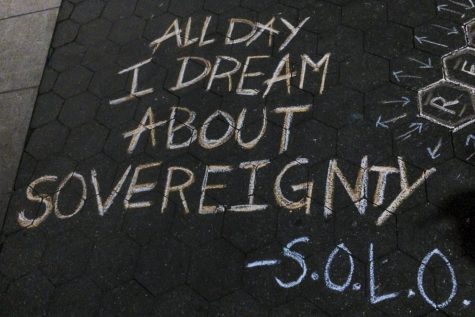 ALL DAY
I DREAM
ABOUT
SOVEREIGNTY
-S.O.L.O.
R E